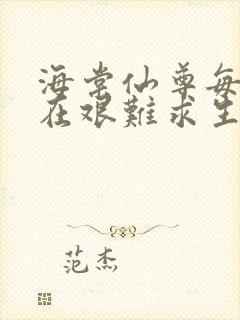 海棠仙尊每
在艰難求生
范杰